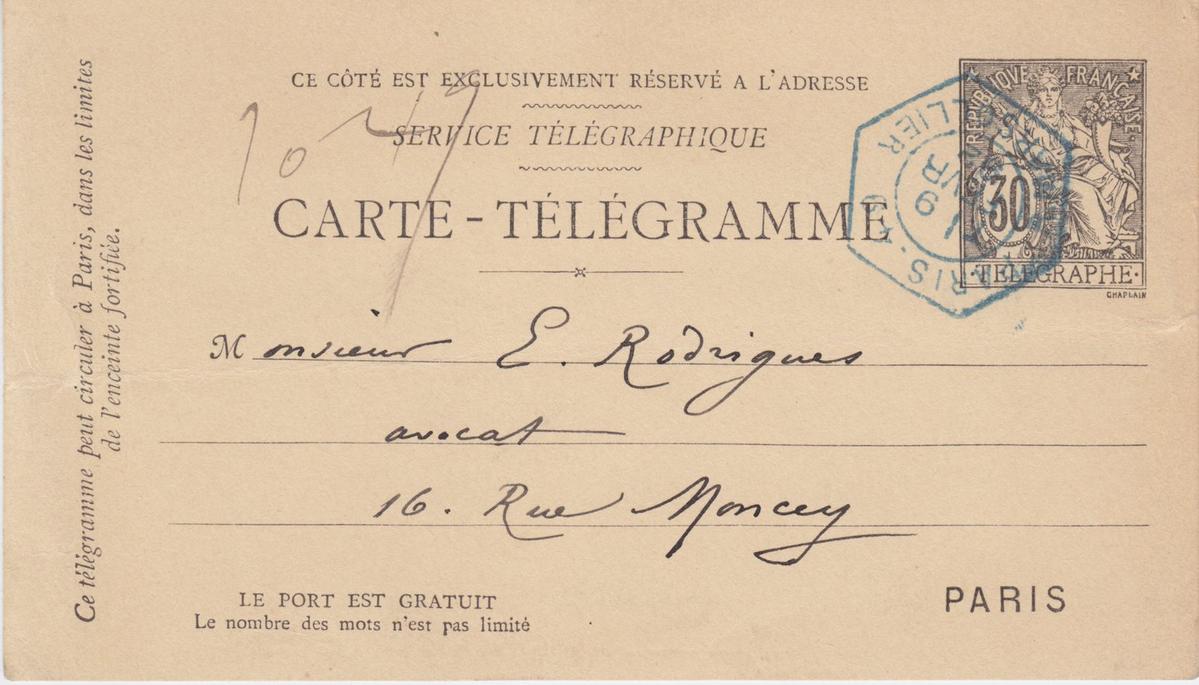 CE CÔTÉ EST EXCLUSIVEMENT RÉSERVÉ A L'ADRESSE
SERVICE TÉLÉGRAPHIQUE
CARTE-TÉLÉGRAMME
RÉPUBLIQUE FRANÇAISE
30
TÉLÉGRAPHE
CHAPLAIN
PARIS
Monsieur E. Rodrigues
avocat
16. Rue Moncey
PARIS
LE PORT EST GRATUIT
Le nombre des mots n'est pas limité
Ce télégramme peut circuler à Paris, dans les limites
de l'enceinte fortifiée.